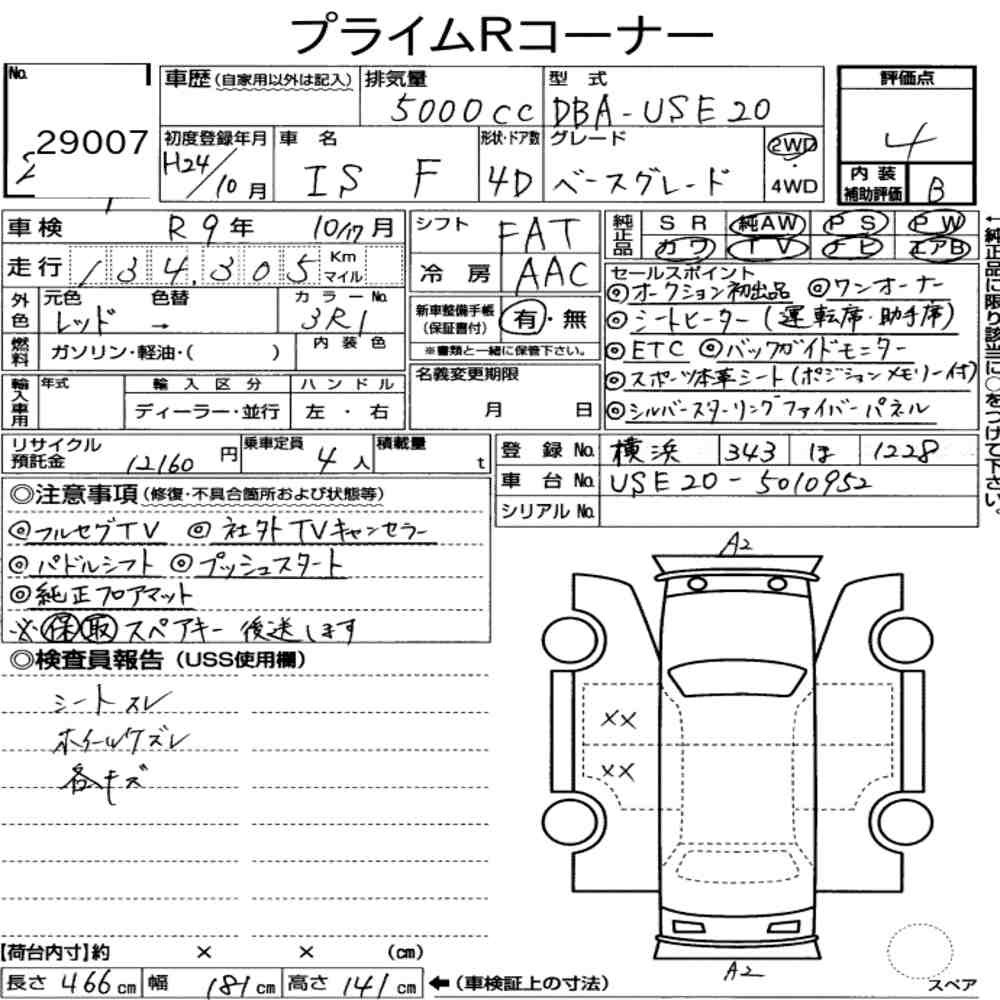 プライムRコーナー
No.
29007
車歴(自家用以外は記入)
排気量
5000cc
型式
DBA-USE20
評価点
4
初度登録年月
H24/10月
車名
IS F
形状・ドア数
4D
グレード
ベースグレード
2WD
・
4WD
内装
補助評価
B
車検
R9年 10/17月
シフト
FAT
純正品
SR 純AW PS PW
カワ TV ナビ エアB
←純正品に限り該当に○をつけて下さい。
走行
134,305
Km
マイル
冷房
AAC
セールスポイント
◎オークション初出品 ◎ワンオーナー
◎シートヒーター(運転席・助手席)
◎ETC ◎バックガイドモニター
◎スポーツ本革シート(ポジションメモリー付)
◎シルバースターリングファイバーパネル
外色
元色
レッド
色替
→
カラーNo.
3R1
新車整備手帳
(保証書付)
有・無
※書類と一緒に保管下さい。
燃料
ガソリン・軽油・( )
内装色
名義変更期限
月 日
輸入車用
年式
輸入区分
ディーラー・並行
ハンドル
左・右
リサイクル
預託金
12160円
乗車定員
4人
積載量
t
登録No.
横浜 343 ほ 1228
車台No.
USE20-5010952
シリアルNo.
◎注意事項(修復・不具合箇所および状態等)
◎フルセグTV ◎社外TVキャンセラー
◎パドルシフト ◎プッシュスタート
◎純正フロアマット
※保取スペアキー後送します
◎検査員報告(USS使用欄)
シートスレ
ホイールキズレ
各キズ
A2
××
××
A2
スペア
【荷台内寸】約 × × (cm)
長さ466cm 幅181cm 高さ141cm ←(車検証上の寸法)